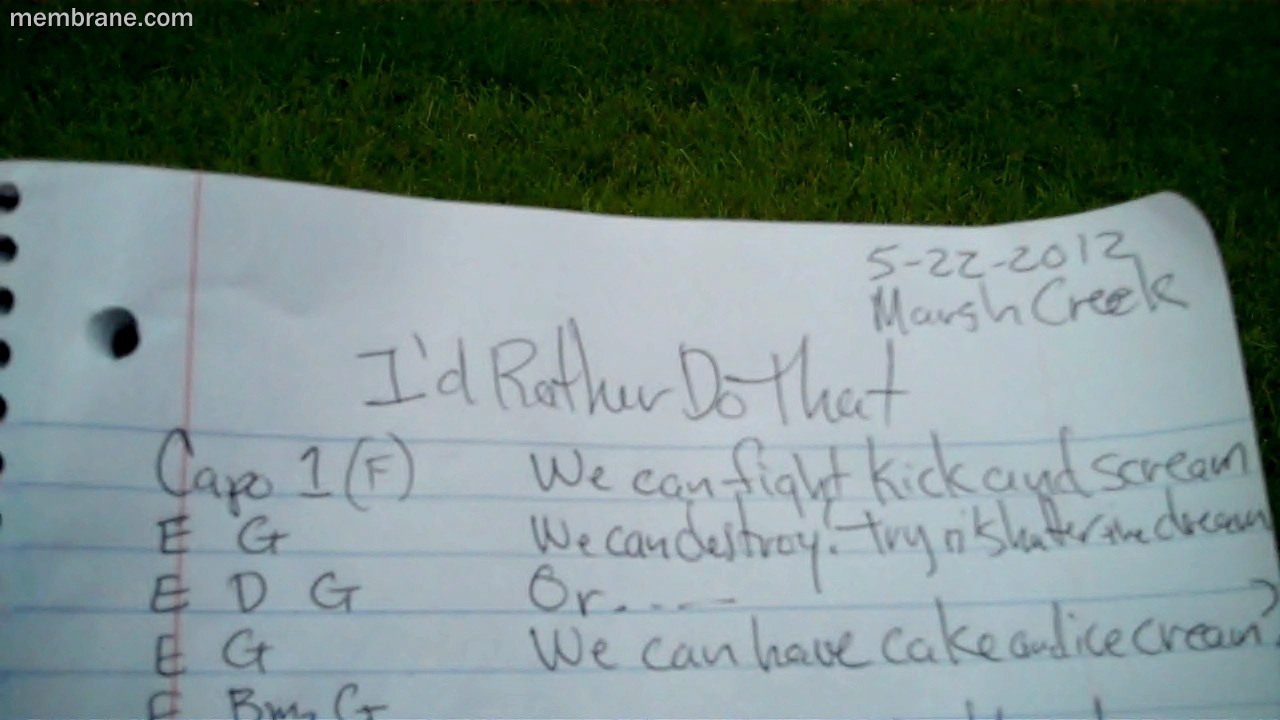 membrane.com
5-22-2012
Marsh Creek
I'd Rather Do That
Capo 1 (F) We can fight kick and scream
E G We can destroy. try n' shatter the dream
E D G Or.....
E G We can have cake and ice cream?
E Bm G